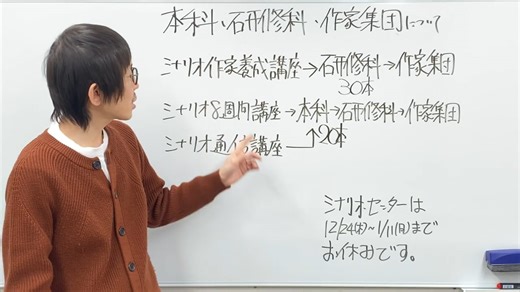 本科、研修科、作家集団について
シナリオ作家養成講座→研修科→作家集団
30本
シナリオ8週間講座→本科→研修科→作家集団
20本
シナリオ通信講座
シナリオ・センターは
12/24(水)~1/11(日)まで
お休みです。